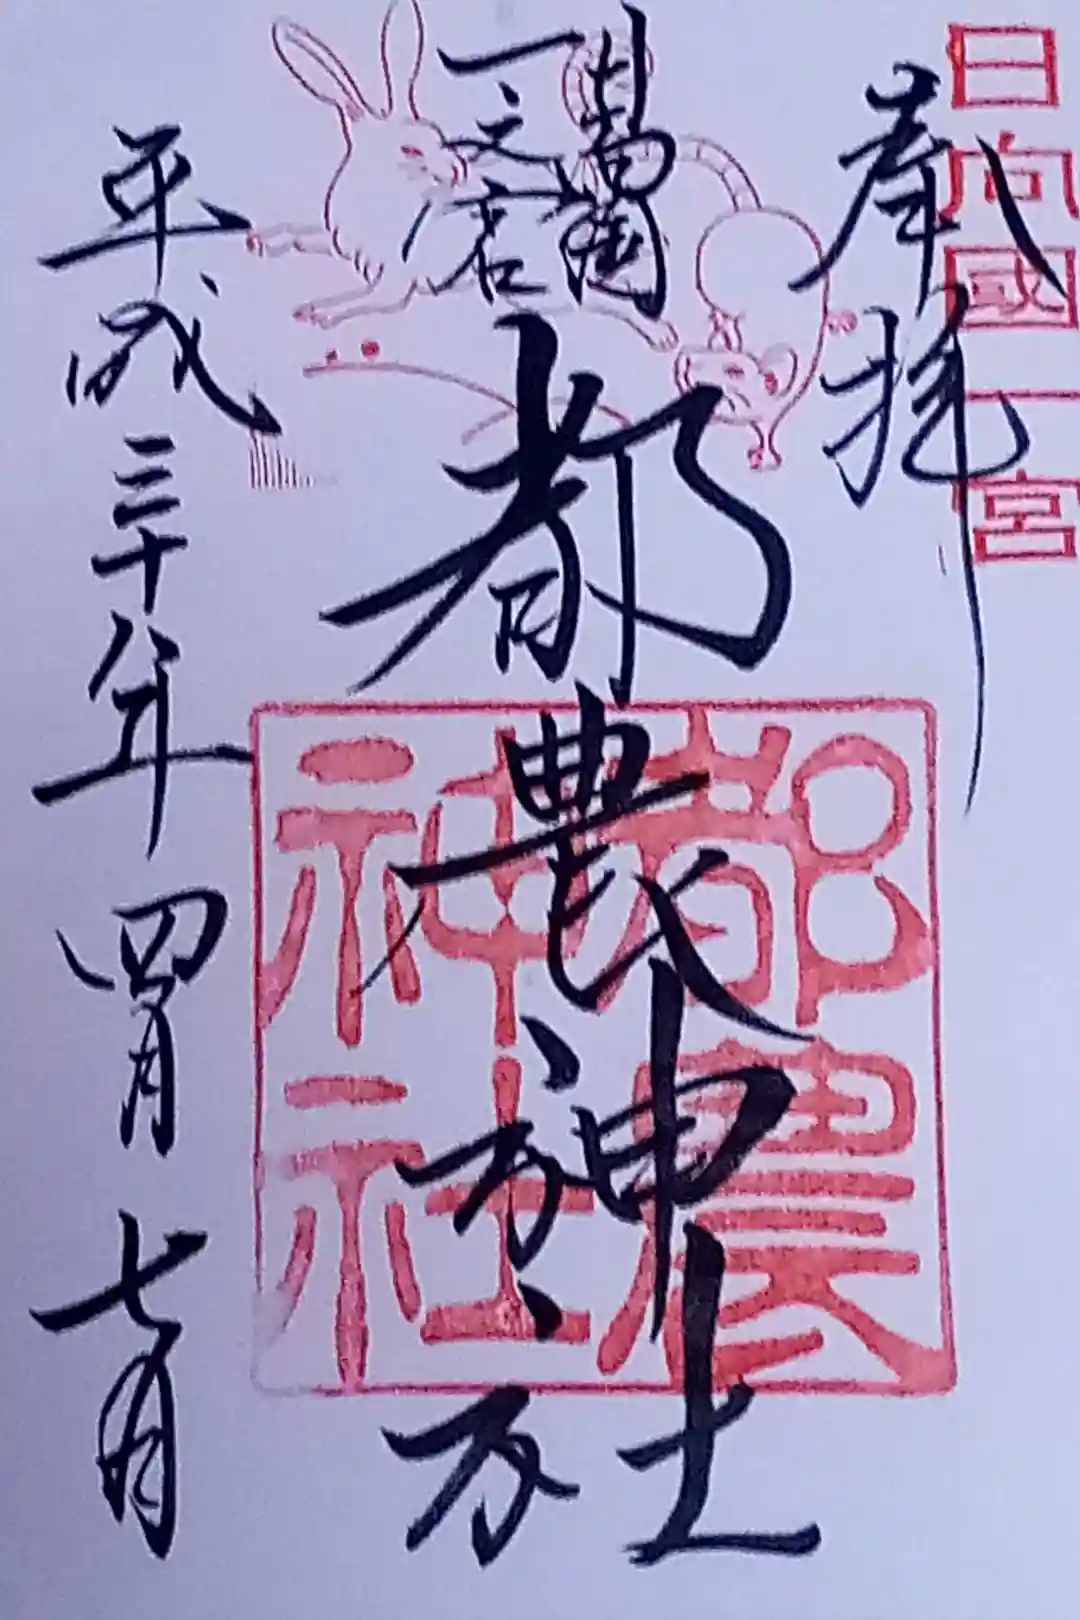 日向國一宮
奉拝
一之宮
都農神社
平成三十年四月七日
都農
神社